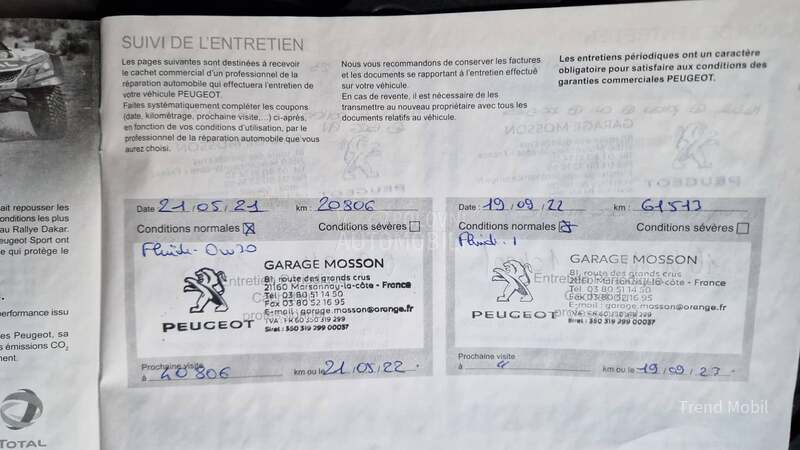 SUIVI DE L'ENTRETIEN
Les pages suivantes sont destinées à recevoir
le cachet commercial d'un professionnel de la
réparation automobile qui effectuera l'entretien de
votre véhicule PEUGEOT.
Faites systématiquement compléter les coupons
(date, kilométrage, prochaine visite,...) ci-après,
en fonction de vos conditions d'utilisation, par le
professionnel de la réparation automobile que vous
aurez choisi.
Nous vous recommandons de conserver les factures
et les documents se rapportant à l'entretien effectué
sur votre véhicule.
En cas de revente, il est nécessaire de les
transmettre au nouveau propriétaire avec tous les
documents relatifs au véhicule.
Les entretiens périodiques ont un caractère
obligatoire pour satisfaire aux conditions des
garanties commerciales PEUGEOT.
ait repousser les
onditions les plus
au Rallye Dakar.
eugeot Sport ont
ce qui protège le
performance issu
es Peugeot, sa
s émissions CO2
ment.
TOTAL
Date 21/05/21 km: 20806
Conditions normales Conditions sévères
Fluide 0w30
GARAGE MOSSON
81, route des grands crus
21160 Marsannay-la-côte - France
Tél 03 80 51 14 50
Fax 03 80 52 16 95
E-mail : garage.mosson@orange.fr
TVA : FR 60 350 319 299
Siret : 350 319 299 00037
PEUGEOT
Prochaine visite
à 40806 km ou le 21/05/22
Date : 19/09/22 km: 61513
Conditions normales Conditions sévères
Fluide 1
GARAGE MOSSON
81, route des grands crus
21160 Marsannay-la-côte - France
Tél 03 80 51 14 50
Fax 03 80 52 16 95
E-mail : garage.mosson@orange.fr
TVA : FR 60 350 319 299
Siret : 350 319 299 00037
PEUGEOT
Prochaine visite
à " km ou le 19/09/23
Trend Mobil